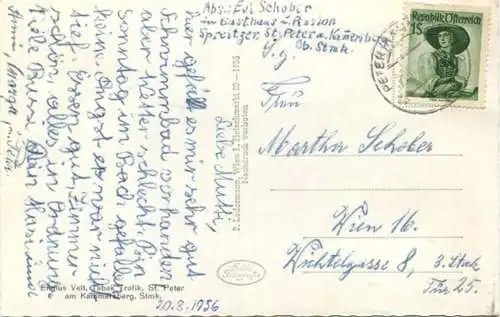 Abs. Evi Schober
in Gasthaus u. Pension
Spreitzer, St. Peter a. Kammersberg
Ob. Stmk.
Republik Österreich
1S
PETER
S. g.
Frau
Martha Schober
Wien 16.
Wichtelgasse 8, 3. Stock
Tür 25.
Liebe Mutti,
Hier gefällt es mir sehr gut
Schwimmbad vorhanden
aber Wetter schlecht. Bin
Sonntag im Bach gefallen
beim Angst es war nicht
tief. Essen gut, Zimmer
schön alles in Ordnung
Liebe Bussi Dein
20.8.1956
Eligius Veit, Tabak Trafik, St. Peter
am Kammersberg, Stmk.
P. Ledermann, Wien I, Fleischmarkt 20 — 1955
Nachdruck verboten
Echte